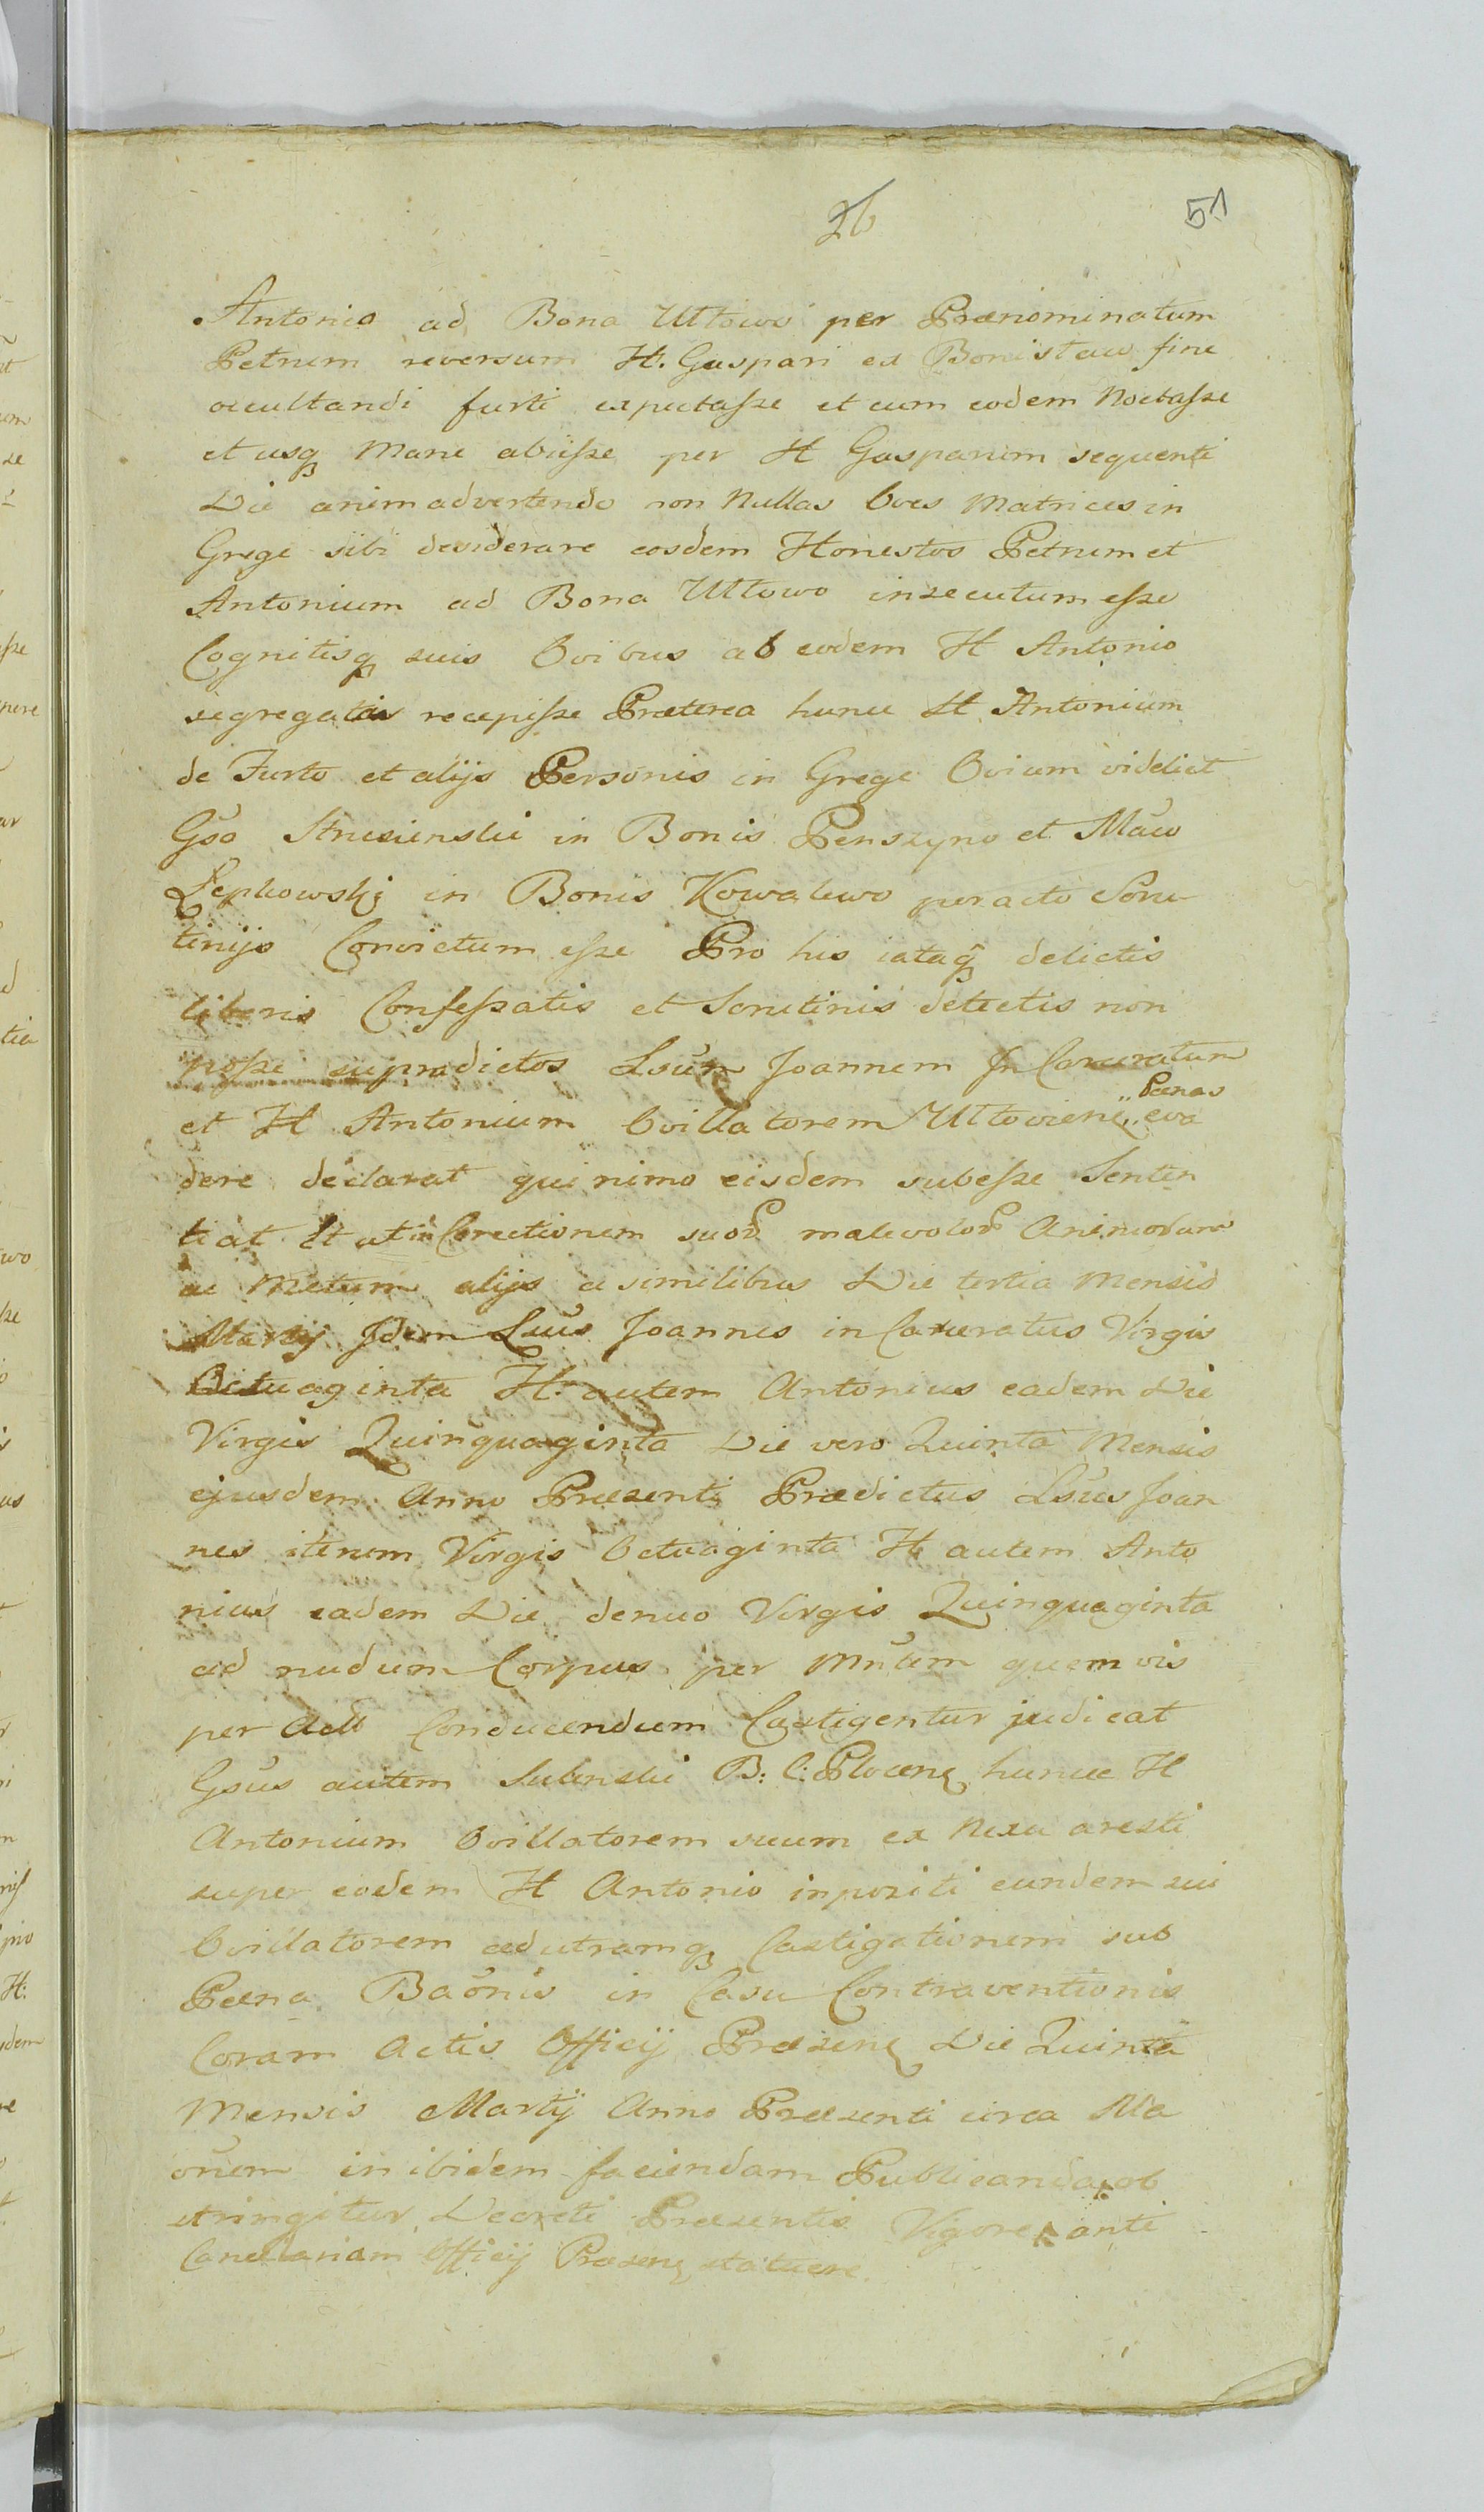 26
51
Antonio ad Bona Ułtowo per Prænominatum
Petrum reversum H. Gaspari ex Bonistaw fine
occultandi furti expectasse et cum eodem Noctasse
et usq Mane abiisse per H Gasparum sequenti
Die animadvertendo non Nullas Oves Matrices in
Grege sibi desiderare eosdem Honestos Petrum et
Antonium ad Bona Ułtowo insecutum esse
Cognitisq suis Ovibus ab eodem H Antonio
segregatis recepisse Præterea hunc H Antonium
de Furto et alijs Personis in Grege Ovium videlicet
Gso in Bonis Penszyno et Mãco
Łepkowskj in Bonis Kowalewo peracto Scru
tinijs Convictum esse Pro his itaq delictis
liberis Confessatis et Scrutinis detectis non
posse supradictos Lsum Joannem In Carceratum
et H Antonium Ovillatorem Ułtoviens Pænas eva
dere declarat quinimo eisdem subesse Senten
tiat Et ut in Corectionem suor malevolor Animorum
ac Metum alijs a similibus Die tertia Mensis
Martij Idem Lsus Joannes in Carceratus Virgis
Octuaginta H. autem Antonius eadem Die
Virgis Quinquaginta Die vero Quinta Mensis
ejusdem Anno Præsenti Prædictus Lsus Joan
nes iterum Virgis Octuaginta H autem Anto
nius eadem Die denuo Virgis Quinquaginta
ad nudum Corpus per Mrũm quemvis
per Conducendum Castigentur judicat
Gsus autem B: C: Plocens hunce H
Antonium Ovillatorem suum ex Nexu aresti
super eodem H Antonio inpositi eundem sui
Ovillatorem ad utramq Castigationem sub
Pæna Baõnis in Casu Contraventionis
Coram Actis Officij Præsens Die Quinta
Mensis Martij Anno Præsenti circa Me
õnem inibidem faciendam Publicanda ob
stringitur Decreti Præsentis Vigore anti
Cancellariam Officij Præsens statuere